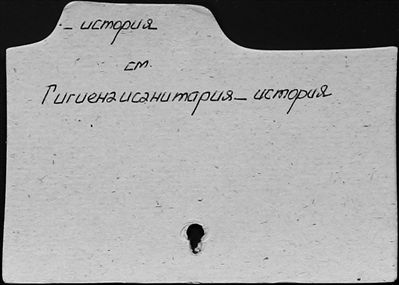 – история
см.
Гигиена и санитария – история